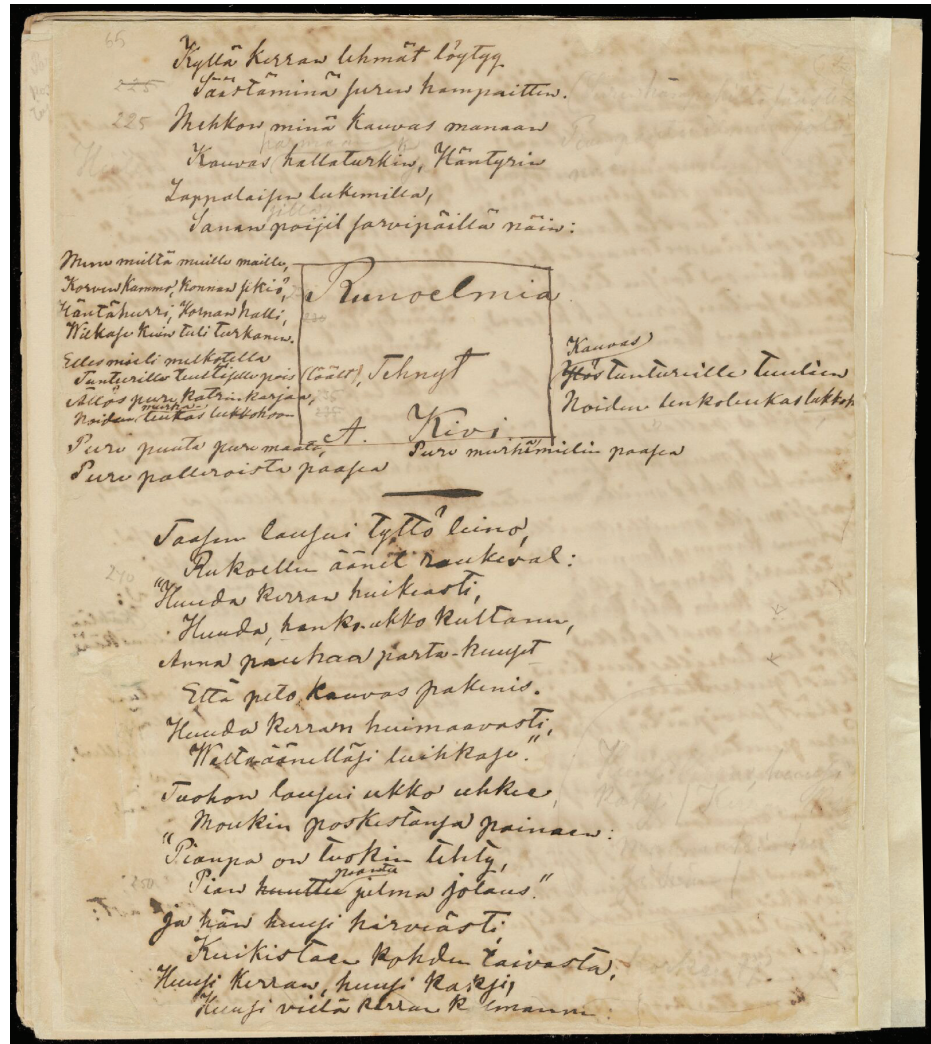 65
Kyllä kerran lehmät löytyy
225 Säästäminä suren hampaitten.
225 Mehkon minä kauvas manaan
Kauvas hallaturkin, Häntyrin
Lappalaisen lukemilla,
Sanan poijil sarvipäillä näin:
Mene mieltä muille maille,
Korven kammo, konnan sikiö,
Häntähurri, Hornan halli,
Wilkase kuin tuli turkanen.
Elles mieli melkotella
Tunturille tuulisselle pois (täält),
Ällös pure katrin karjaa,
Noiden murha-leukas lukkohoon
Pure puuta pure maata,
Pure palleroista paasea
Runoelmia
Tehnyt
A. Kivi
Kauvas
tuntureille tuulien
Noiden leukas lukkoh
Pure murhämielin paasea
Taasen lausui tyttö leino,
Rukoellen äänet raukeval:
240
"Huuda kerran huikeasti,
Huuda, hanko-ukko kultanen,
Anna pauhaa parta-kuuset
Että peto kauvas pakenis.
Huuda kerran huimaavasti,
Walta-äänelläsi luihkase."
Tuohon lausui ukko uhkee,
Moukin poskestansa painaen:
"Pianpa on tuokin tehty,
250 Pian huuttu poianten pelma jolaus."
Ja hän huusi hirveästi,
Kuikistaen kohden taivasta,
Huusi kerran, huusi kaksi,
Huusi vielä kerran k lmannen: